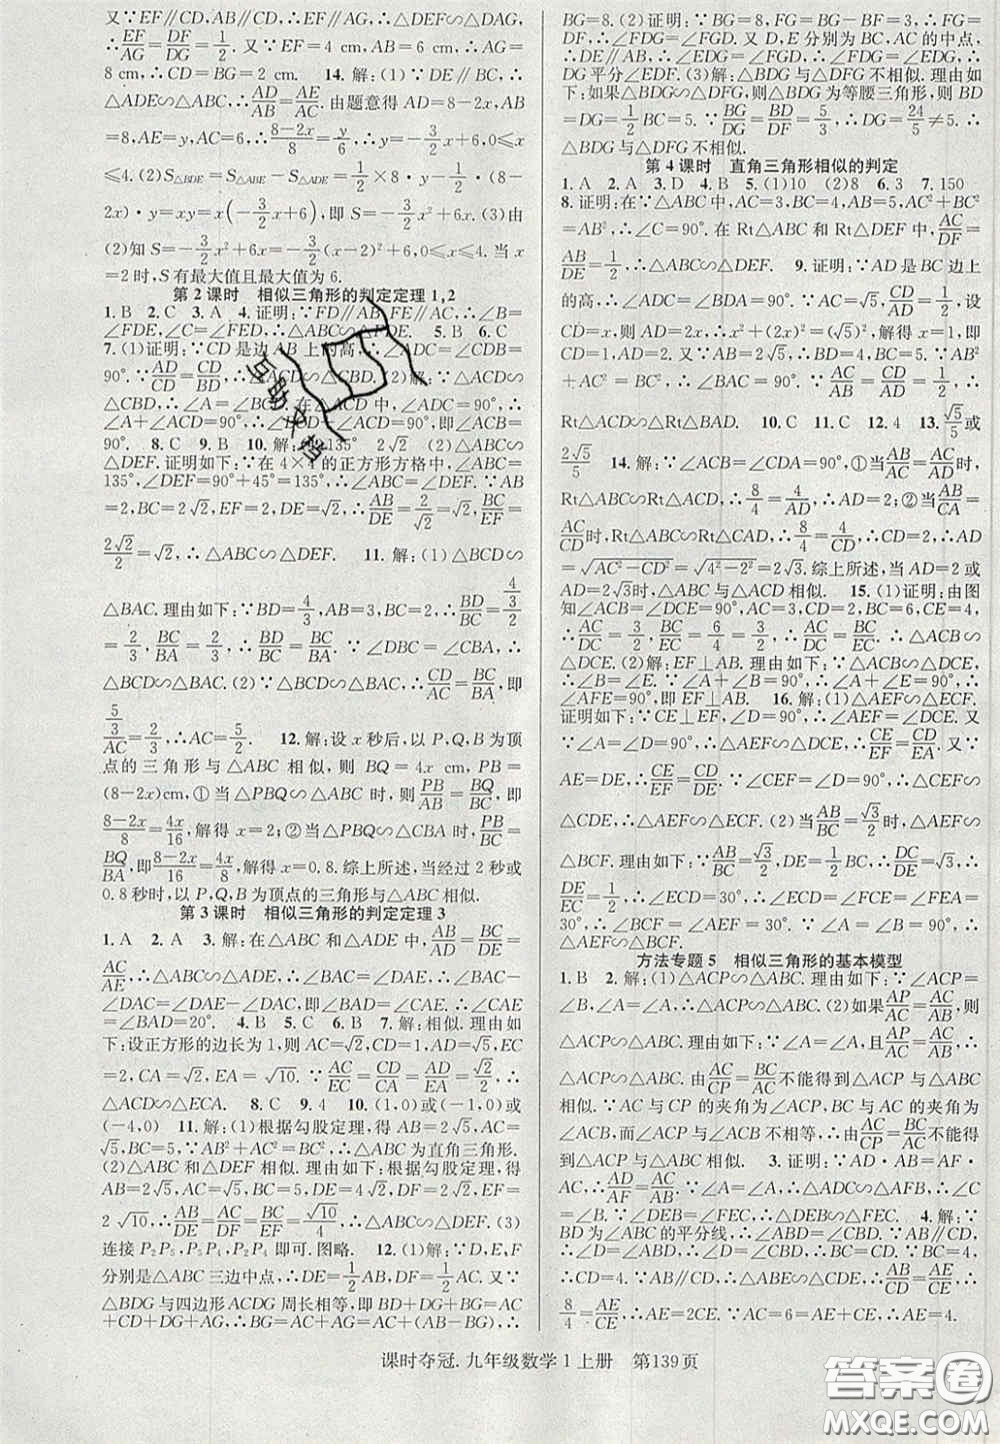 又∵EF∥CD,AG∥CD,∴EF∥AG.∴△DEF∽△DAG,
∴EF/AG=DF/DG=1/2.又∵EF=4 cm,AB=6 cm,∴AG=
8 cm,∴CD=BG=2 cm. 14.解:(1)∵DE∥BC,∴
△ADE∽△ABC,∴AD/AB=AE/AC.由题意得AD=8-2x,AB
=8,AE=y,AC=6,∴(8-2x)/8=y/6,∴y=-3/2x+6,0≤x
≤4.(2)S△BDE=S△ABE-S△ADE=1/2×8·y-1/2·(8-
2x)·y=xy=x(-3/2x+6),即S=-3/2x²+6x.(3)由
(2)知S=-3/2x²+6x=-3/2(x-2)²+6,0≤x≤4.当
x=2时,S有最大值且最大值为6.
第2课时 相似三角形的判定定理1,2
1.B 2.C 3.A 4.证明:∵FD∥AB,FE∥AC,∴∠B=
∠FDE,∠C=∠FED,∴△ABC∽△FDE. 5.B 6.C
7.(1)证明:∵CD是边AB上的高,∴∠ADC=∠CDB=
90°.∵AD/CD=CD/BD,∴△ACD∽△CBD.(2)解:∵△ACD∽
△CBD,∴∠A=∠BCD.在△ACD中,∠ADC=90°,∴
∠A+∠ACD=90°,∴∠BCD+∠ACD=90°,即∠ACB=
90°. 8.C 9.B 10.解:(1)135° 2√2 (2)△ABC∽
△DEF.证明如下:∵在4×4的正方形方格中,∠ABC=
∠DEF=90°+45°=135°,∴∠ABC=∠DEF.∵AB
=2,BC=2√2,EF=2,DE=√2,∴AB/DE=2/√2=√2,BC/EF=
2√2/2=√2,∴△ABC∽△DEF. 11.解:(1)△BCD∽
△BAC.理由如下:∵BD=4/3,AB=3,BC=2,∴BD/BC=(4/3)/2
=2/3,BC/BA=2/3,∴BD/BC=BC/BA.∵∠DBC=∠CBA,∴
△BCD∽△BAC.(2)∵△BCD∽△BAC,∴CD/AC=BC/BA,即
(5/3)/AC=2/3,∴AC=5/2. 12.解:设x秒后,以P,Q,B为顶
点的三角形与△ABC相似,则BQ=4x cm,PB=
(8-2x)cm,①当△PBQ∽△ABC时,则PB/AB=BQ/BC,即
(8-2x)/8=4x/16,解得x=2;②当△PBQ∽△CBA时,PB/BC=
BQ/BA,即(8-2x)/16=4x/8,解得x=0.8.综上所述,当经过2秒或
0.8秒时,以P,Q,B为顶点的三角形与△ABC相似.
第3课时 相似三角形的判定定理3
1.A 2.A 3.解:在△ABC和△ADE中,AB/AD=BC/DE=
AC/AE,∴△ABC∽△ADE,∴∠BAC=∠DAE,∴∠BAC-
∠DAC=∠DAE-∠DAC,即∠BAD=∠CAE.∴∠CAE
=∠BAD=20°. 4.B 5.C 6.B 7.解:相似.理由如
下:设正方形的边长为1,则AC=√2,CD=1,AD=√5,EC
=2,CA=√2,EA=√10.∵AC/EC=CD/CA=AD/EA=√2/2,∴
△ACD∽△ECA. 8.C 9.4 10.(1,0)或(-1,0)或
(-4,0) 11.解:(1)根据勾股定理,得AB=2√5,AC=
√5,BC=5,∵AB²+AC²=BC²,∴△ABC为直角三角形.
(2)△ABC和△DEF相似.理由如下:根据勾股定理,得
AB=2√5,AC=√5,BC=5,DE=4√2,DF=2√2,EF=
2√10,AB/DE=AC/DF=BC/EF=√10/4,∴△ABC∽△DEF.(3)
连接P₂P₅,P₄P₅,P₂P₄即可.图略. 12.(1)解:∵D,E,F
分别是△ABC三边中点,∴DE=1/2AB,DF=1/2AC.又∵
△BDG与四边形ACDG周长相等,即BD+DG+BG=AC
+CD+DG+AG,∴BG=AC+AG.∵BG+(AB-BG)=
BG=8.(2)证明:∵BG=8,FG=BG-BF=3,∴FG=
DF,∴∠FDG=∠FGD.又∵D,E分别为BC,AC的中点,
∴DE∥AB,∴∠EDG=∠FGD,∴∠FDG=∠EDG,∴
DG平分∠EDF.(3)解:△BDG与△DFG不相似.理由如
下:如果△BDG∽△DFG,则△BDG为等腰三角形,则BD
=DG=1/2BC=5.∵BG/DG=BD/DF=5/3,∴DG=24/5≠5.∴
△BDG与△DFG不相似.
第4课时 直角三角形相似的判定
1.A 2.A 3.D 4.B 5.(1)10 (2)8 6.3 7.150
8.证明:在∵△ABC中,AC=3,BC=4,AB=5,AC²+BC²
=AB²,∴∠C=90°.在Rt△ABC和Rt△DEF中,AC/DF=
AB/DE=1/2,∴△ABC∽△DEF. 9.证明:∵AD是BC边上
的高,∴∠ADC=∠ADB=90°.∵CD/AD=1/2,设
CD=x,则AD=2x,∴x²+(2x)²=(√5)²,解得x=1,即
CD=1,AD=2.又∵BD=4,BC=5.∵AD/BD=CD/AD=1/2,∴
Rt△ACD∽Rt△BAD. 10.C 11.C 12.4 13.√5/5或
2√5/5 14.解:∵∠ACB=∠CDA=90°,①当AB/AC=AC/AD时,
Rt△ABC∽Rt△ACD,∴8/4=4/AD,∴AD=2;②当AB/CA=
AC/CD时,Rt△ABC∽Rt△CAD,∴8/4=4/CD,∴CD=2,∴AD
=√(AC²-CD²)=√(4²-2²)=2√3.综上所述,当AD=2或
AD=2√3时,△ABC与△ACD相似. 15.(1)证明:由图
知∠ACB=∠DCE=90°,AC=3,CD=2,BC=6,CE=4,
∴AC/DC=3/2,BC/EC=6/4=3/2,∴AC/DC=BC/EC,∴△ACB∽
△DCE.(2)解:EF⊥AB.理由如下:∵△ACB∽△DCE,
∴∠A=∠D.∵∠D+∠E=90°,∴∠A+∠E=90°,∴
∠AFE=90°,即EF⊥AB. 16.解:(1)△AEF∽△ECF.
证明如下:∵CE⊥EF,∠D=90°,∴∠AEF=∠DCE.又
∵∠A=∠D=90°,∴△AEF∽△DCE,∴CE/EF=CD/AE.又∵
AE=DE,∴CE/EF=CD/DE.∵∠CEF=∠D=90°,∴△CEF∽
△CDE,∴△AEF∽△ECF.(2)当AB/BC=√3/2时,△AEF∽
△BCF.理由如下:∵AB/BC=√3/2,DE=1/2BC,∴DC/DE=√3.
DE/EC=1/2,∴∠ECD=30°,∴∠ECF=∠AEF=
30°,∴∠BCF=∠AEF=30°.∵∠A=∠B=90°,∴
△AEF∽△BCF.
方法专题5 相似三角形的基本模型
1.B 2.解:(1)△ACP∽△ABC.理由如下:∵∠ACP=
∠B,∠A=∠A,∴△ACP∽△ABC.(2)如果AP/AC=AC/AB,则
△ACP∽△ABC.理由如下:∵∠A=∠A,且AP/AC=AC/AB,∴
△ACP∽△ABC.由AC/CP=BC/AC不能得到△ACP与△ABC
相似.∵AC与CP的夹角为∠ACP,BC与AC的夹角为
∠ACB,而∠ACP与∠ACB不相等,∴由AC/CP=BC/AC不能得
到△ACP与△ABC相似. 3.证明:∵AD·AB=AF·
AC,∴AD/AF=AC/AB.∵∠A=∠A,∴△ADC∽△AFB,∴∠C
=∠B.∵∠DEB=∠FEC,∴△DEB∽△FEC. 4.解:∵
BD为∠ABC的平分线,∴∠ABD=∠CBD.∵AB∥CD,
∴∠D=∠ABD,∴∠D=∠CBD,∴BC=CD.∵BC=4,
∴CD=4.∵AB∥CD,∴△ABE∽△CDE,∴AB/CD=AE/CE,∴
8/4=AE/CE,∴AE=2CE.∵AC=6=AE+CE,∴AE=4.
课时夺冠.九年级数学1上册 第139页
互助文档
答案圈
MXQE.COM